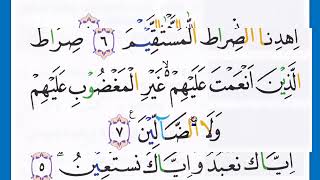 اِهْدِنَا الصِّرَاطَ الْمُسْتَقِيْمَ ۙ ٦ صِرَاطَ
الَّذِيْنَ اَنْعَمْتَ عَلَيْهِمْ ۙ غَيْرِ الْمَغْضُوْبِ عَلَيْهِمْ
وَلَا الضَّآلِّيْنَ ࣖ ٧
اِيَّاكَ نَعْبُدُ وَاِيَّاكَ نَسْتَعِيْنُ ۗ ٥